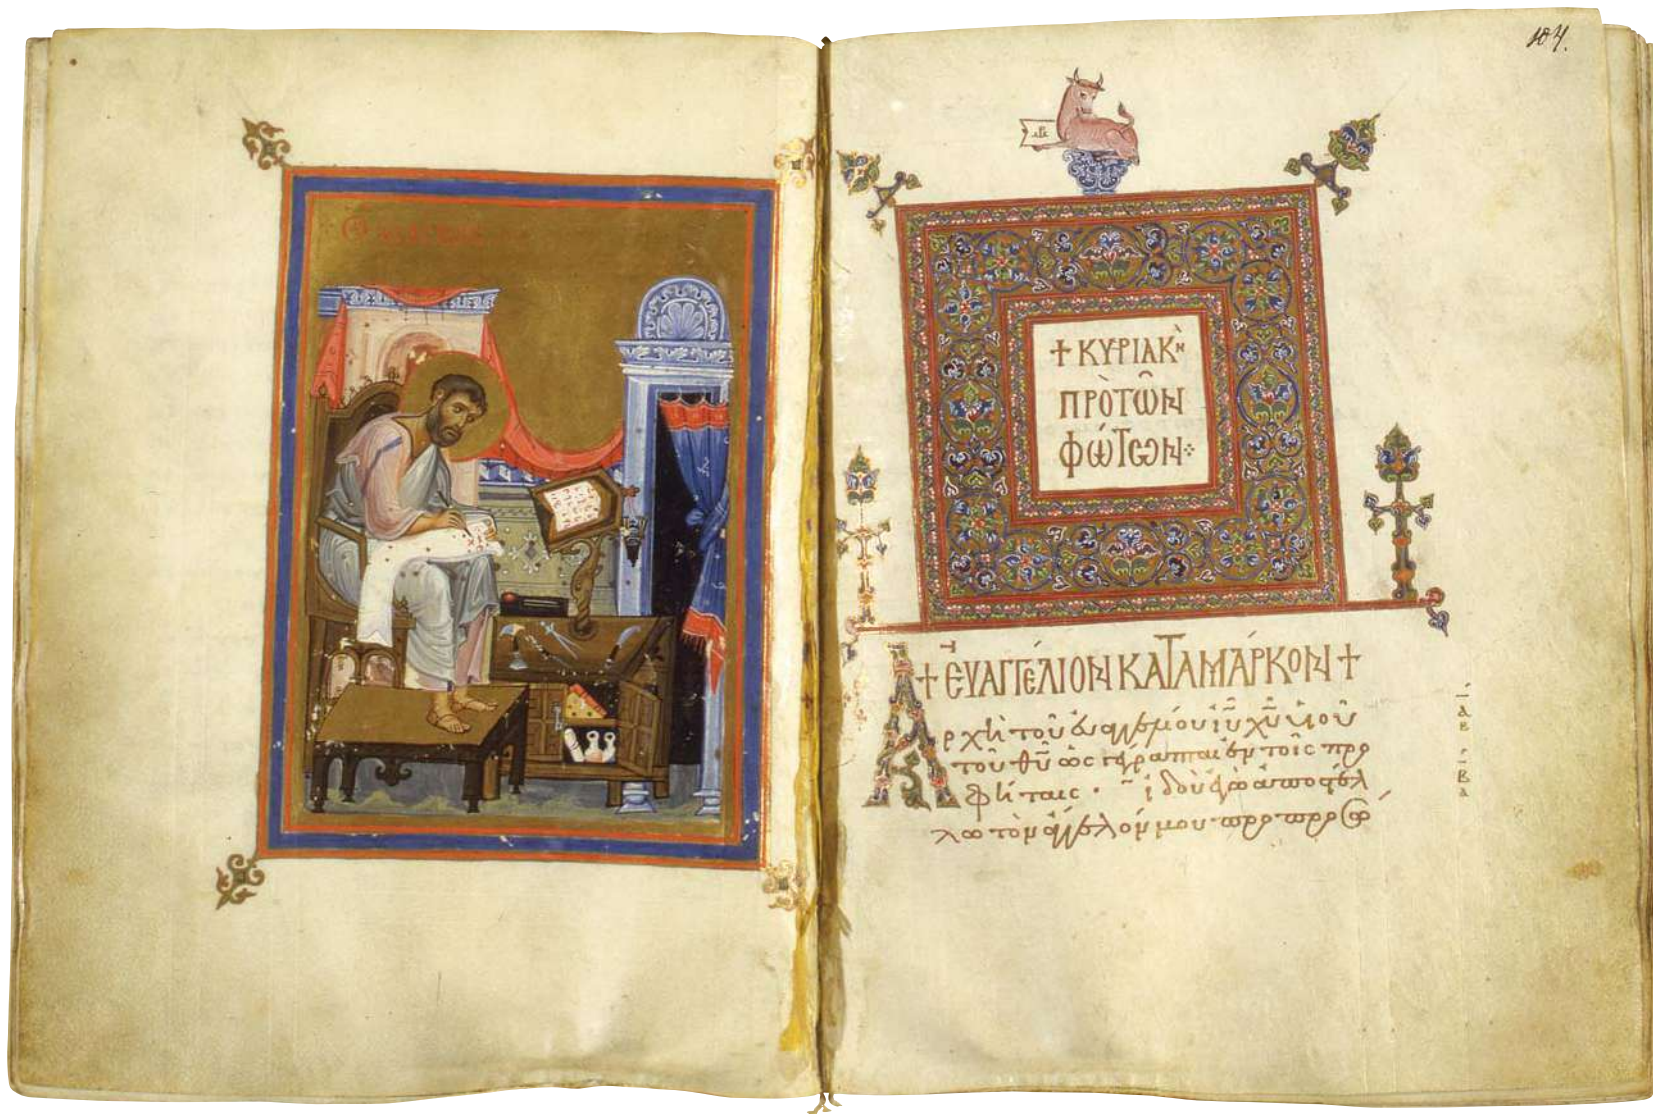 104.
+ ΚΥΡΙΑΚῊ
ΠΡῸΤΩ͂Ν
ΦΏΤΩΝ
+ ΕΥΑΓΓΈΛΙΟΝ ΚΑΤΑ ΜΆΡΚΟΝ +
Ἀρχὴ τοῦ εὐαγγελίου ἰῦ χῦ υἱοῦ
τοῦ θῦ ὡς γέγραπται ἐν τοῖς προ
φήταις · ἰδοὺ ἐγὼ ἀποστέλ
λω τὸν ἄγγελόν μου πρὸ προσώ